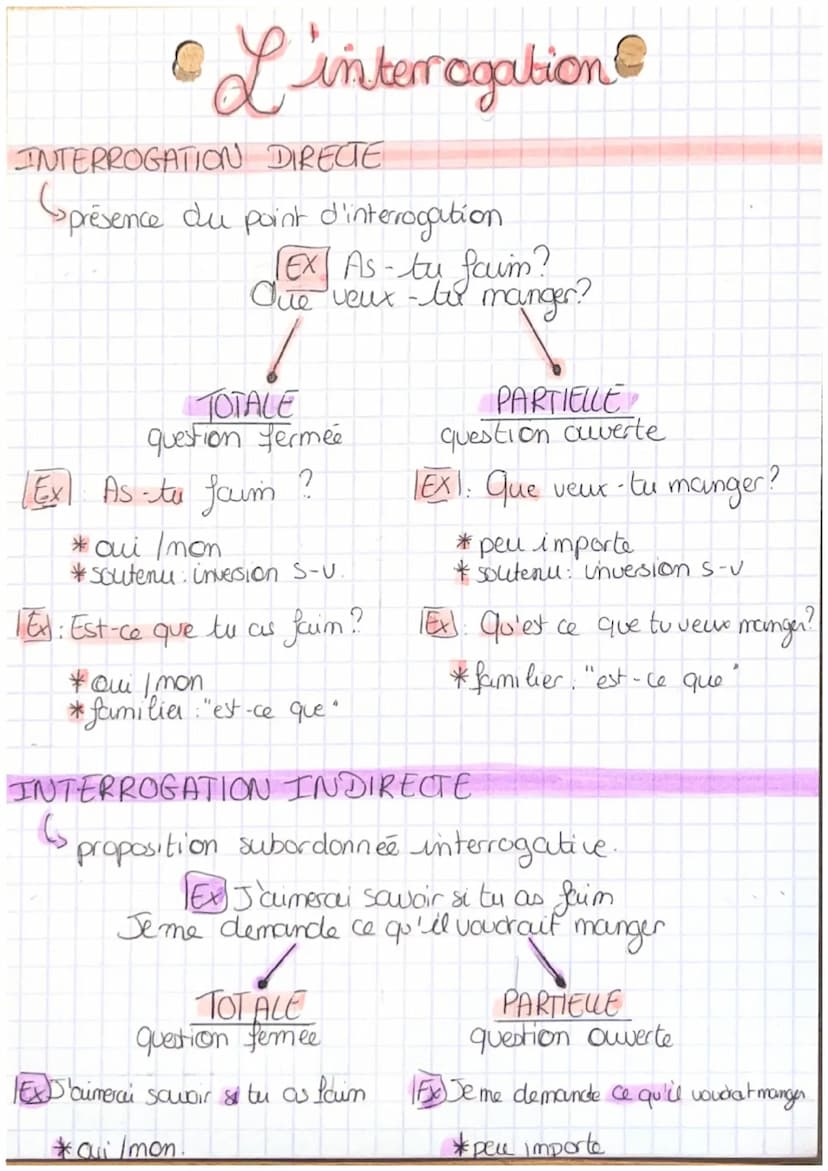 L'interrogation
INTERROGATION DIRECTE
présence du point d'interrogation
EX As-tu faim?
Que veux-tu manger?
TOTALE
question fermeé
Ex : As-tu faim ?
* oui /non
* soutenu : inversion S-V.
Ex : Est-ce que tu as faim?
* oui /non
* familier : "est-ce que"
PARTIELLE
question ouverte
EX : Que veux-tu manger?
* peu importe
* soutenu : inversion S-V
Ex : Qu'est ce que tu veux manger?
* familier : "est-ce que"
INTERROGATION INDIRECTE
proposition subordonneé interrogative.
Ex J'aimerai savoir si tu as faim
Je me demande ce qu'il voudrait manger
TOTALE
question fermeé
Ex J'aimerai savoir si tu as faim
* oui /non.
PARTIELLE
question ouverte
Ex Je me demande ce qu'il voudrait manger
* peu importe